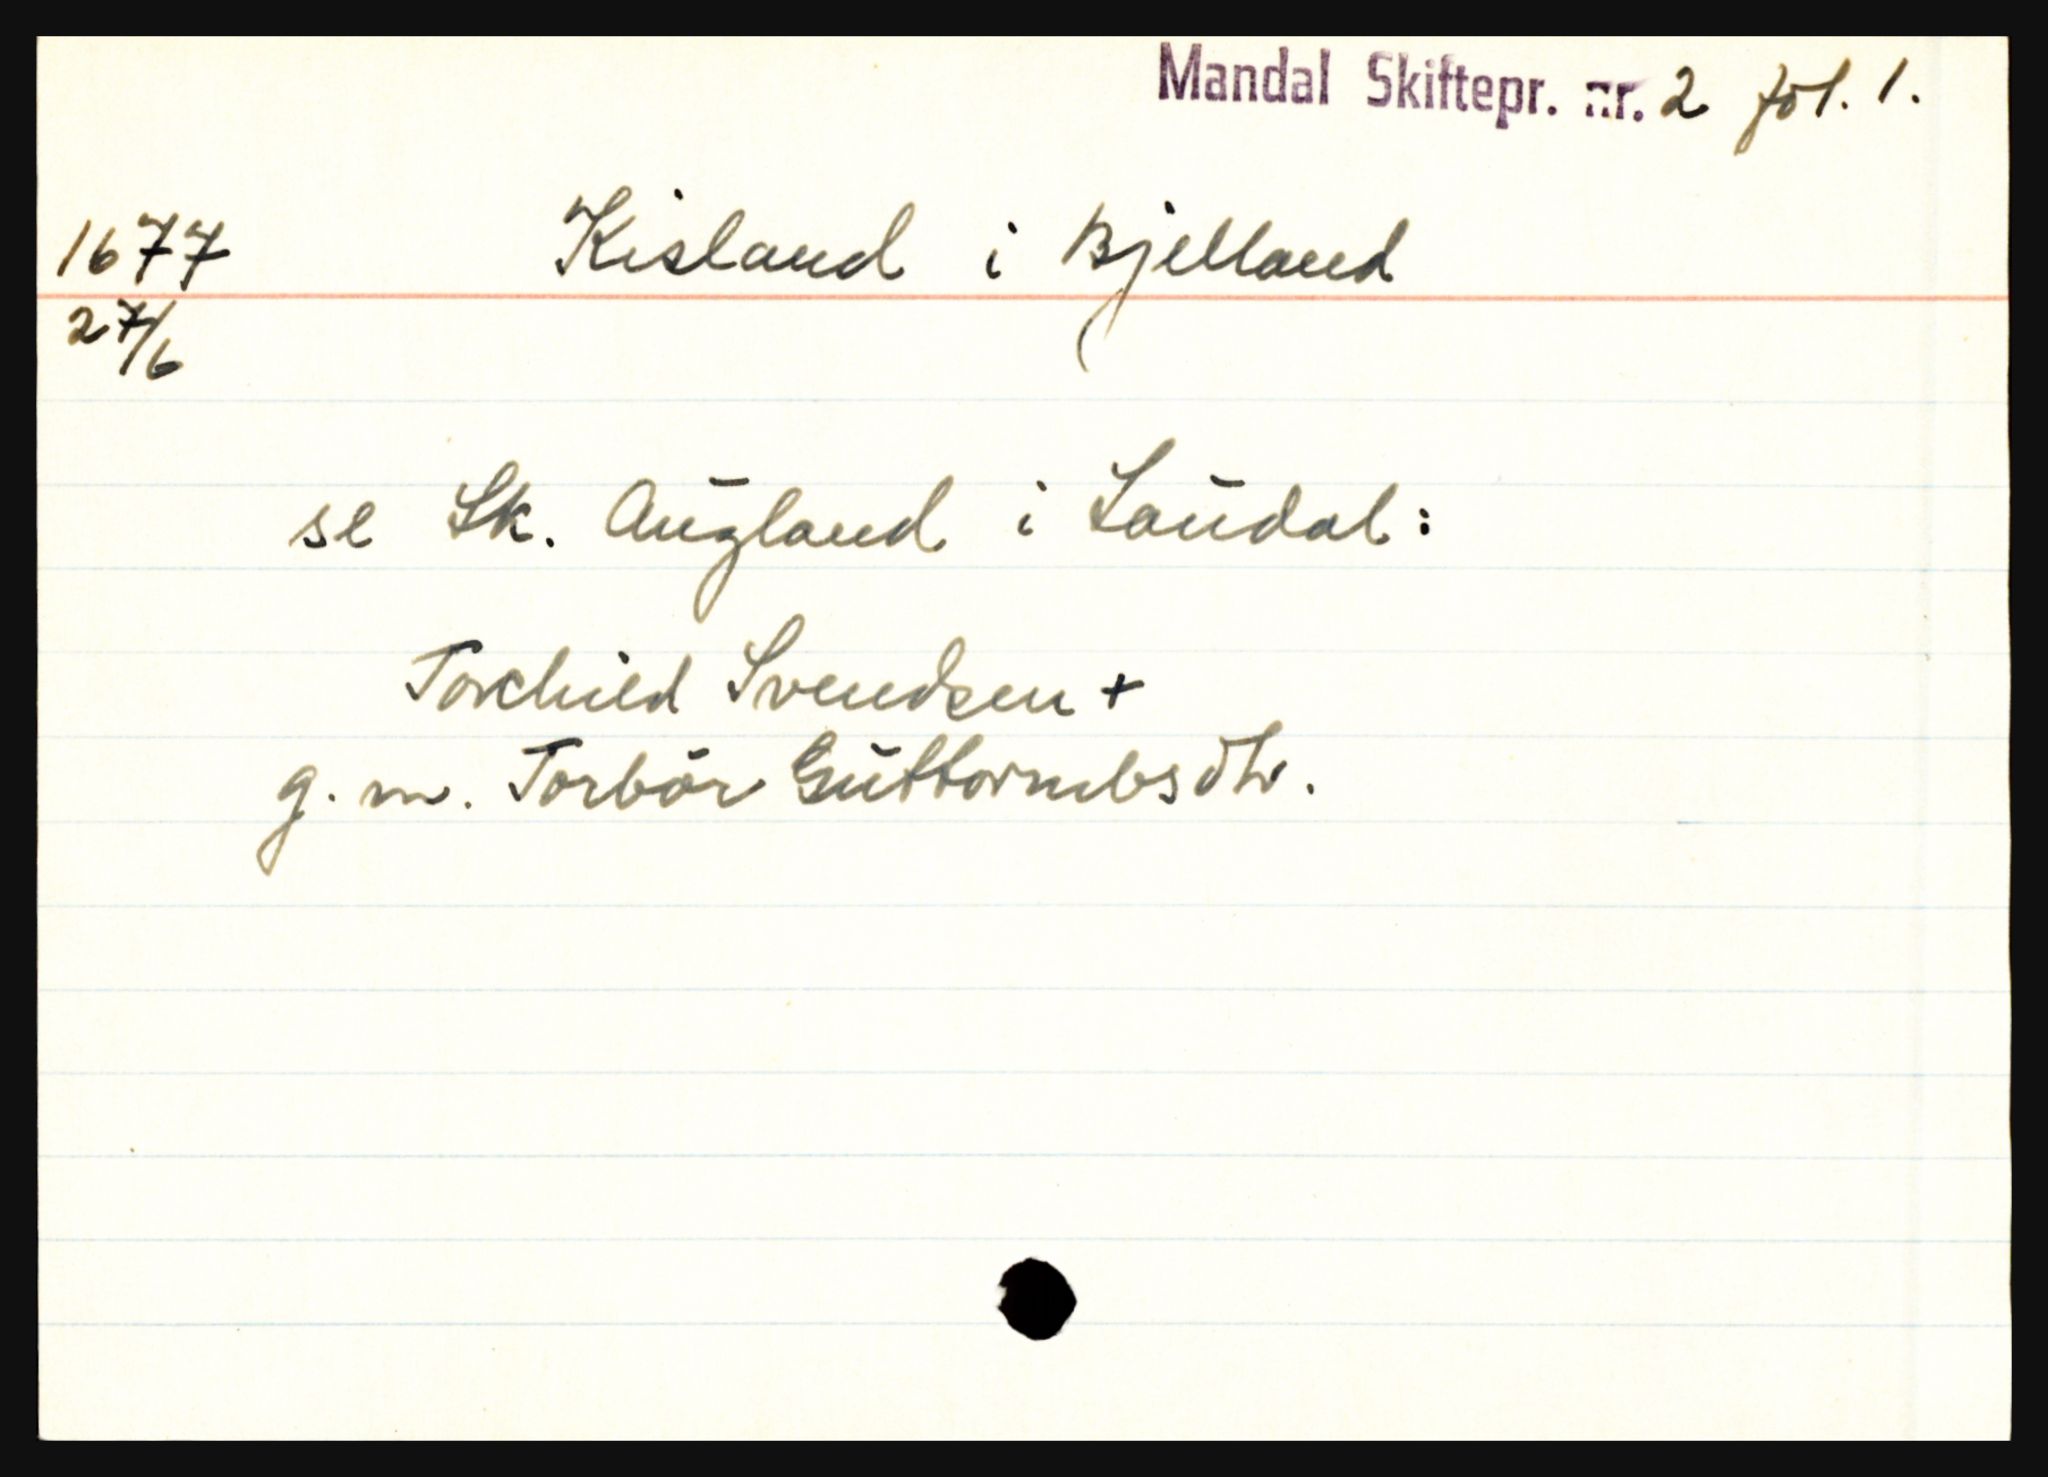 Mandal Skiftepr. nr. 2 fol. 1.
1677 Kisland i Bjelland
27/6
se Sk. Augland i Laudal:
Torchild Svendsen +
g. m. Torbör Guttormbsdtr.